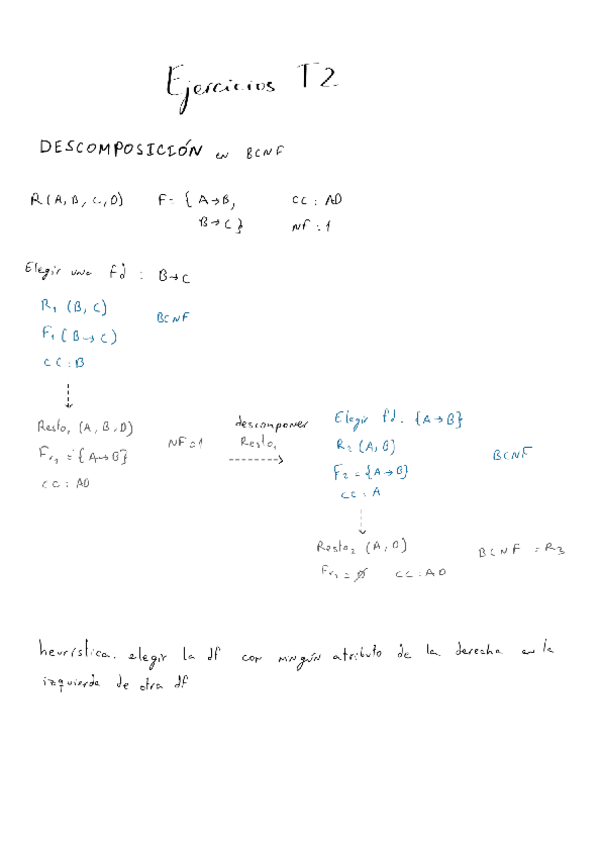 Ejercicios T2
DESCOMPOSICIÓN en BCNF
R(A, B, C, D) F= { A→B, CC: AD
B→C} NF: 1
Elegir una fd : B→C
R₁ (B, C) BCNF
F₁ (B→C)
CC: B
Resto₁ (A, B, D) NF=1
Fr₁ = {A→B}
CC: AD
descomponer
Resto₁
Elegir fd. {A→B}
R₂ (A, B) BCNF
F₂ = {A→B}
CC: A
Resto₂ (A, D) BCNF = R₃
Fr₂ = ∅ CC: AD
heurística. elegir la df con ningún atributo de la derecha en la
izquierda de otra df